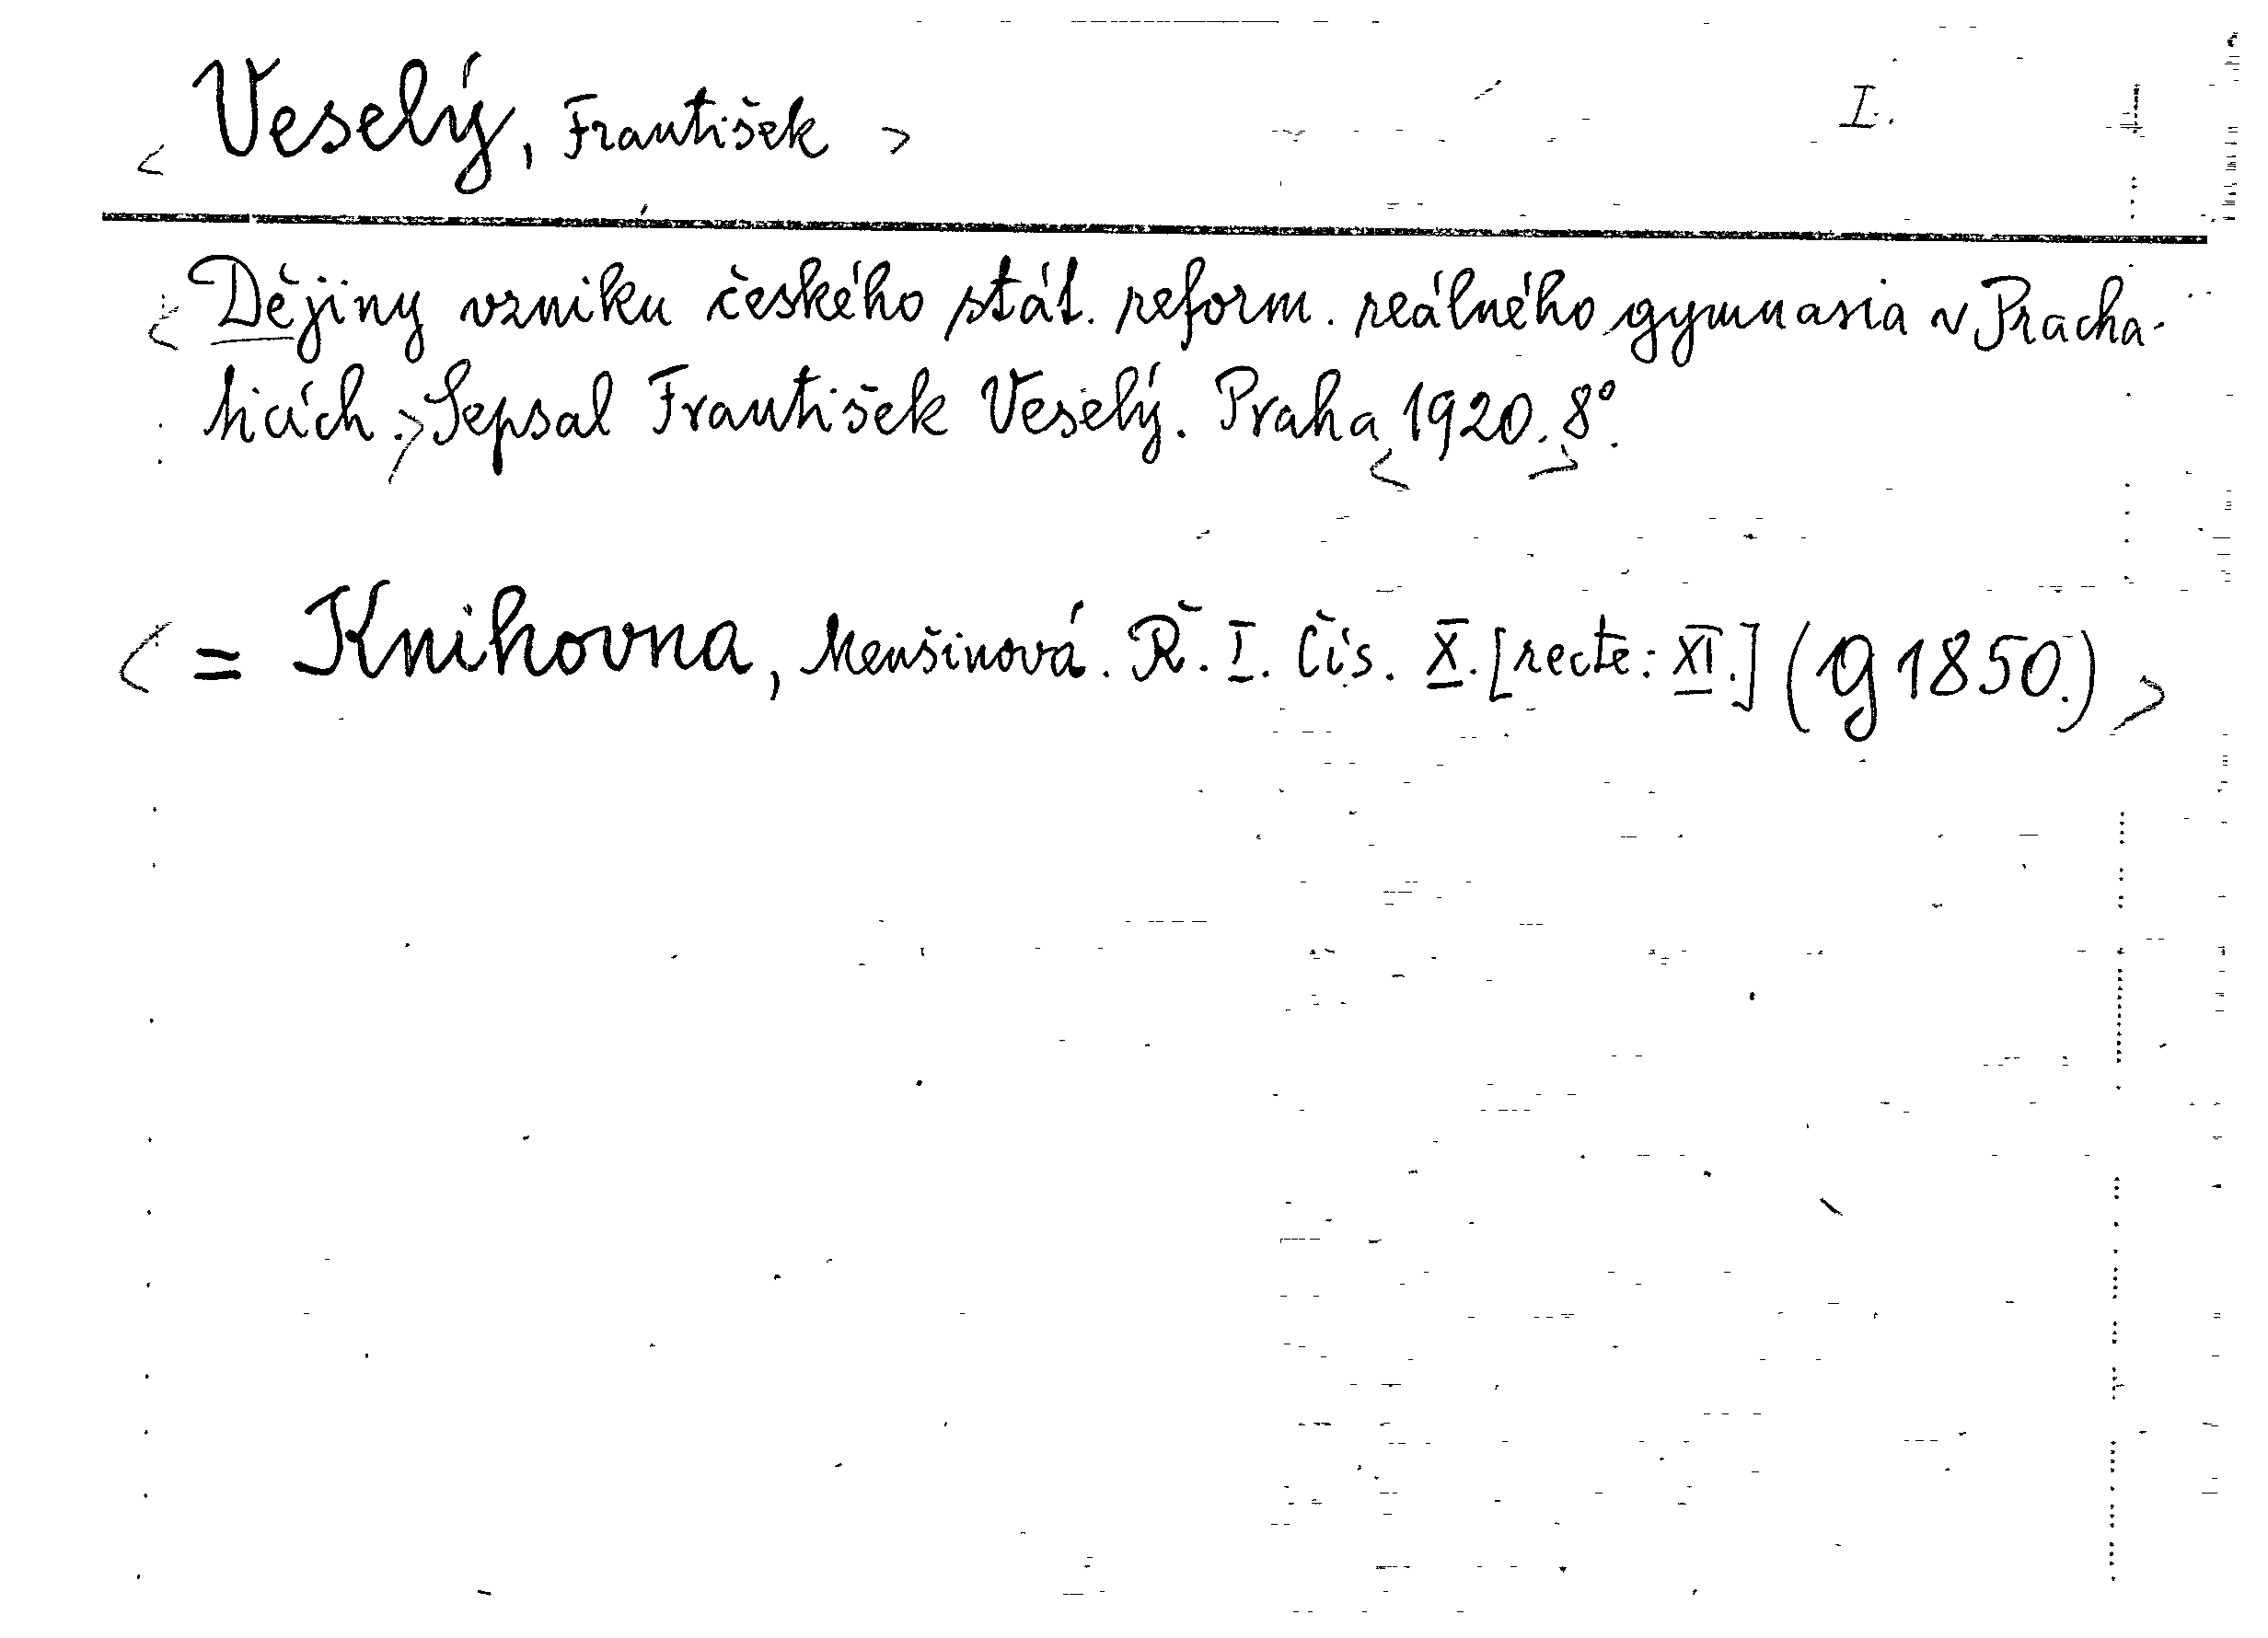 < Veselý, František > I.
< Dějiny vzniku českého stát. reform. reálného gymnasia v Pracha-
ticích.> Sepsal František Veselý. Praha <1920.> 8°.
< = Knihovna, Menšinová. Ř. I. Čís. X. [recte: XI.] (9g 1850.) >